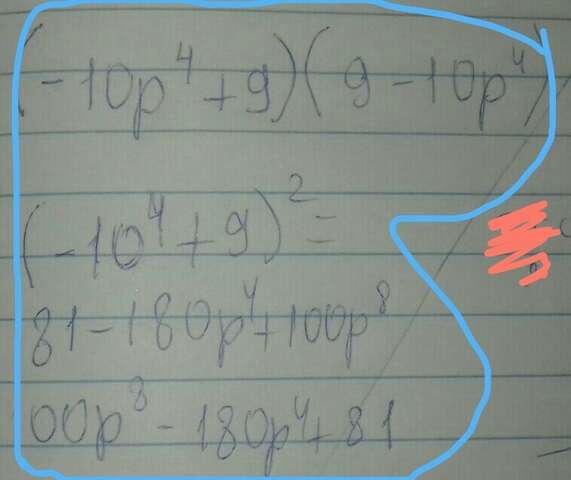 (-10p⁴+9)(9-10p⁴)
(-10⁴+9)²=
81-180p⁴+100p⁸
00p⁸-180p⁴+81